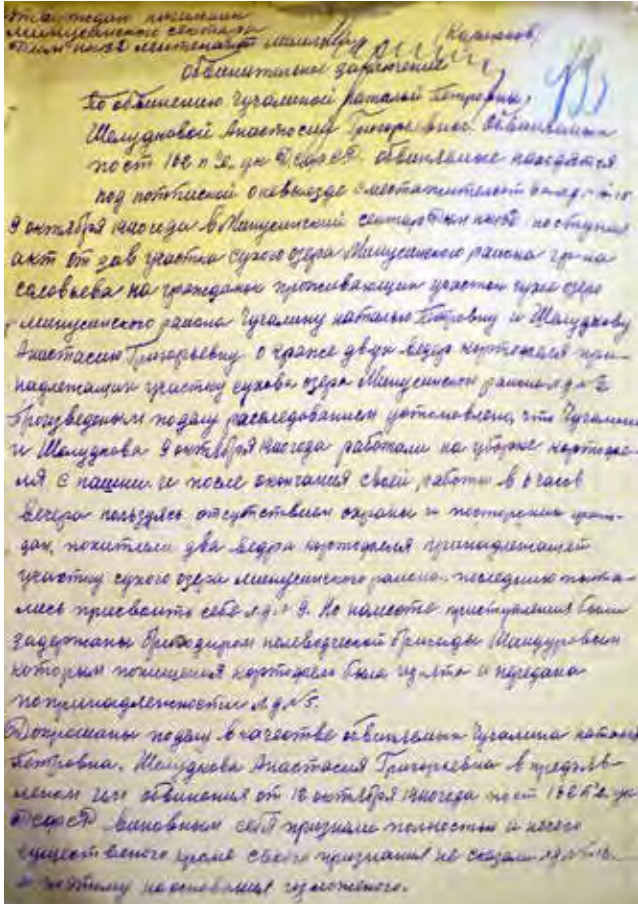 Утверждаю начальник
Минусинского
лейтенант милиции (Калтыков)
Обвинительное заключение
По обвинению Чугалиной Натальи Петровны,
Шолудковой Анастасии Григорьевной. Обвиняемых
по ст 162 п "е" ук РСФСР. обвиняемые находятся
под подпиской о невыезде с местожительств
9 октября 1940 года в Минусинский поступил
акт от зав участка сухого озера Минусинского района гр-на
Соловьева на гражданок проживающих участок сухое озеро
Минусинского района Чугалину Наталью Петровну и Шолудкову
Анастасию Григорьевну о краже двух ведер картофеля при-
надлежащих участку сухова озера Минусинского района л.д. № 2
Произведеным по делу расследованием установлено, что Чугалина
и Шолудкова 9 октября 1940 года работали на уборке картофе-
ля с пашни. и после окончания своей работы в 6 часов
вечера пользуясь отсутствием охраны и посторонних граж-
дан, похитили два ведра картофеля принадлежащей
участку сухого озера Минусинского района. последнию пыта-
лись присвоить себе л.д. № 9. Но на месте приступления были
задержаны бригадиром полеводческой бригады Шандуровым
которым похищеная картофель была из-ята и передана
по принадлежности л.д. № 5.
Допрошены по делу в качестве обвиняемых Чугалина Наталья
Петровна. Шолудкова Анастасия Григорьевна в предъяв-
леном им обвинения от 12 октября 1940 года по ст 162 п "е" ук
РСФСР виновным себя признали полностью и нечего
существеного кроме своего признания не сказали л.д.
а поэтому на основании изложеного.